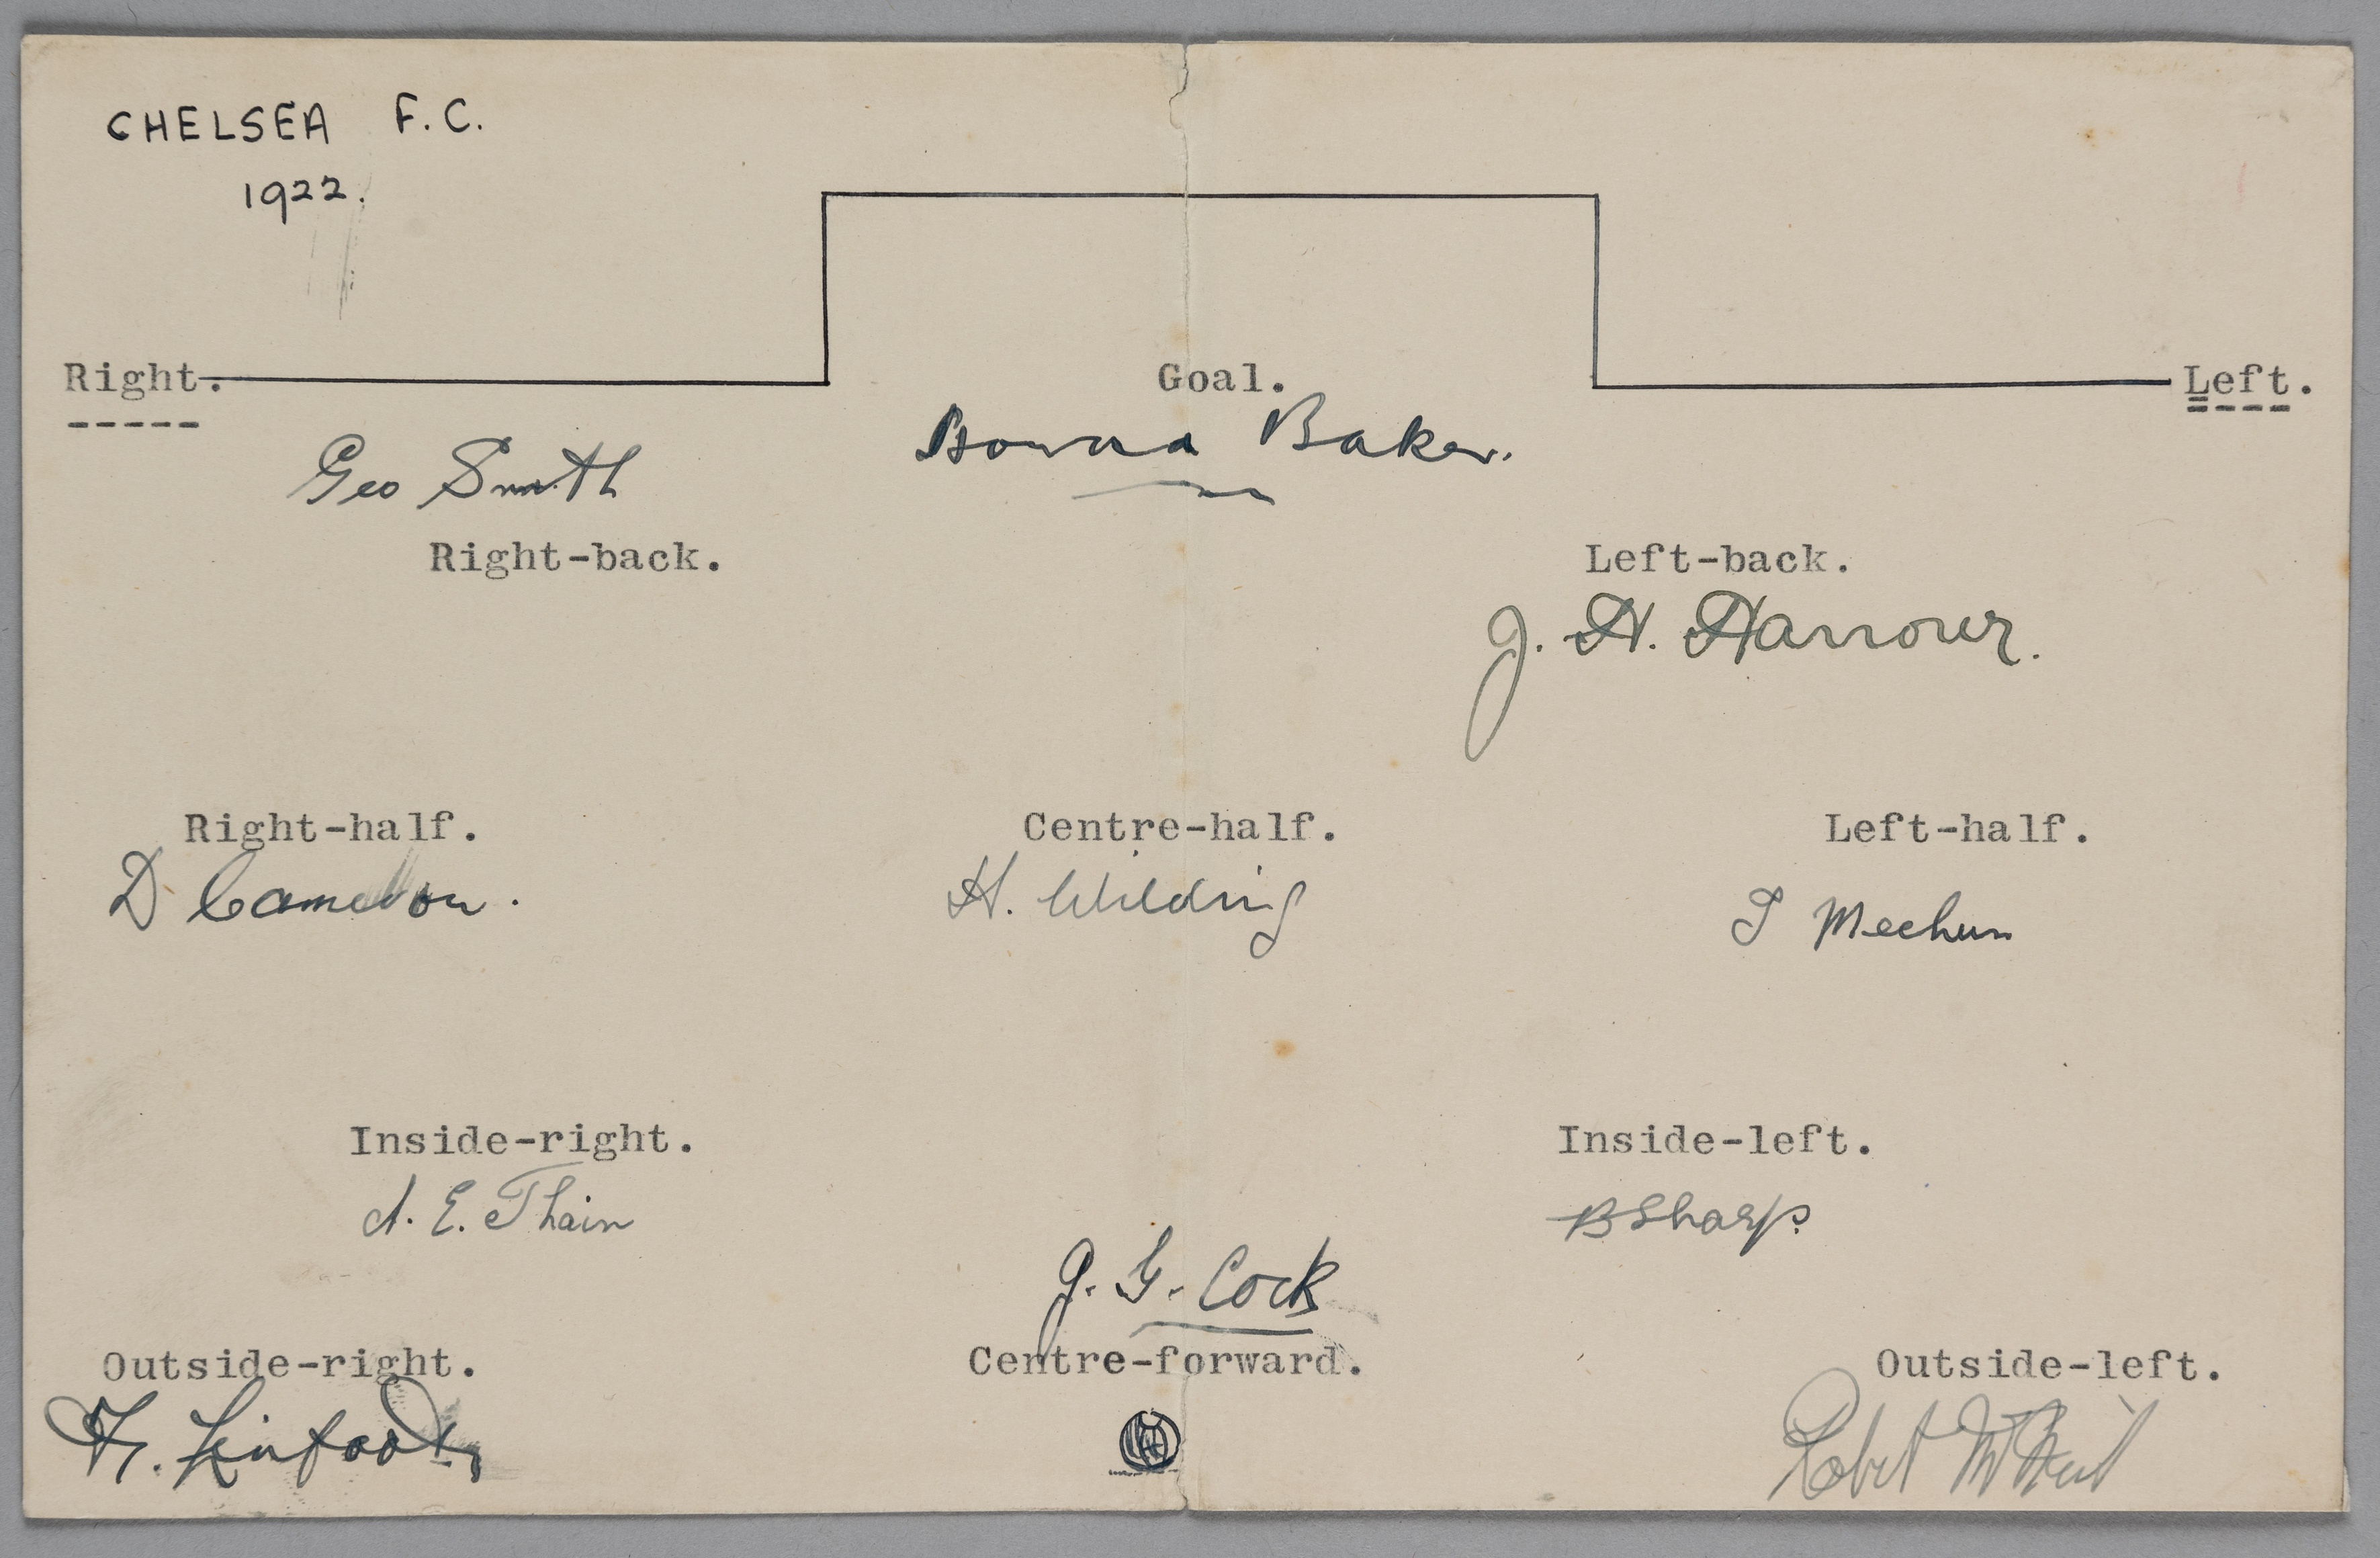 CHELSEA F.C.
1922.
Right. Goal. Left.
Howard Baker.
Geo Smith
Right-back. Left-back.
J. H. Harrower.
Right-half. Centre-half. Left-half.
D Cameron. H. Wilding T Meehan
Inside-right. Inside-left.
A. E. Thain B Sharp.
J. G. Cock
Outside-right. Centre-forward. Outside-left.
F. Linfoot Robert McNeil